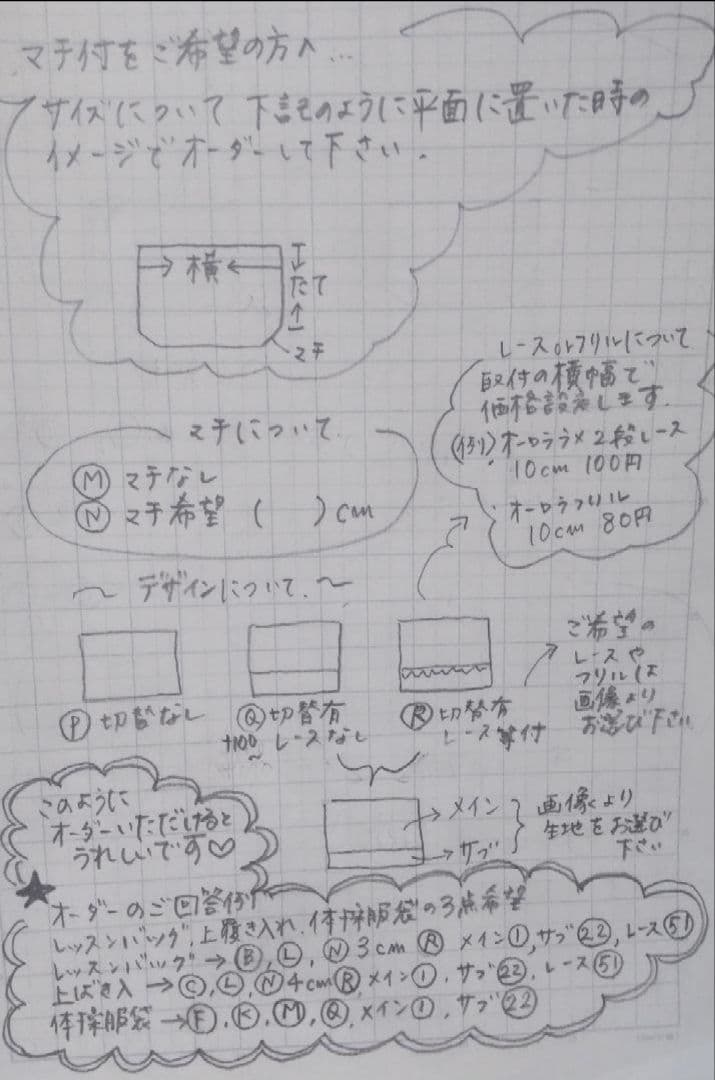 マチ付をご希望の方へ...
サイズについて 下記のように平面に置いた時の
イメージでオーダーして下さい.
横
たて
マチ
レースorフリルについて
取付の横幅で
価格設定します.
(例)・オーロララメ2段レース
10cm 100円
・オーロラフリル
10cm 80円
マチについて
Ⓜ マチなし
Ⓝ マチ希望 ( )cm
〜 デザインについて. 〜
Ⓟ切替なし
Ⓠ切替有
+100〜 レースなし
Ⓡ切替有
レース等付
ご希望の
レースや
フリルは
画像より
お選び下さい
メイン
サブ
画像より
生地をお選び
下さい
このように
オーダーいただけると
うれしいです♡
★
オーダーのご回答例
レッスンバッグ,上履き入れ,体操服袋の3点希望
レッスンバッグ→Ⓑ,Ⓛ,Ⓝ3cm Ⓡ メイン①,サブ㉒,レース㊿①
上ばき入→Ⓒ,Ⓛ,Ⓝ4cmⓇ,メイン①,サブ㉒,レース㊿①
体操服袋→Ⓕ,Ⓚ,Ⓜ,Ⓠ,メイン①,サブ㉒